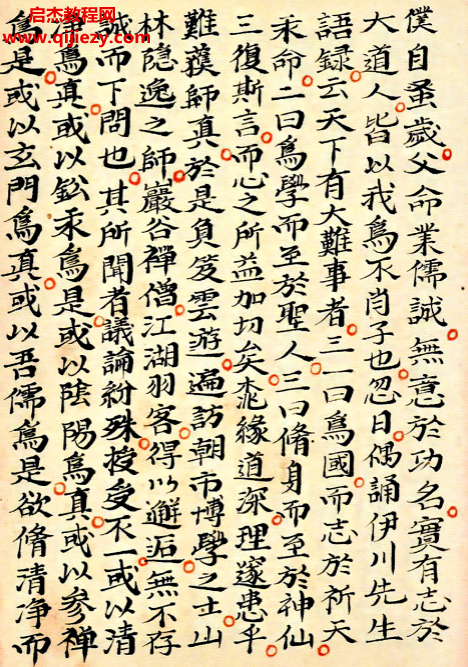 启杰教程网
www.qijiezy.com
僕自蚤歲父命業儒誠無意於功名實有志於
大道人皆以我爲不肖子也忽日偶誦伊川先生
語録云天下有大難事者三一曰爲國而志於祈天
永命二曰爲學而至於聖人三曰脩身而至於神仙
三復斯言而心之所益加切矣柰緣道深理邃患乎
難獲師真於是負笈雲遊遍訪朝市博學之士山
林隐逸之師巖谷禪僧江湖羽客得以邂逅無不存
誠而下問也其所聞者議論紛殊授受不一或以清
淨爲真或以鈆汞爲是或以陰陽爲真或以参禪
爲是或以玄門爲真或以吾儒爲是欲脩清净而